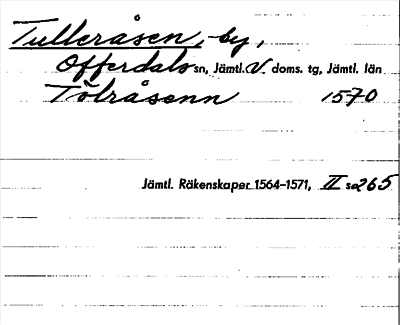 Tulleråsen, by,
Offerdals sn, Jämtl. V. doms. tg, Jämtl. län
Tölråsenn 1570
Jämtl. Räkenskaper 1564-1571, II s. 265